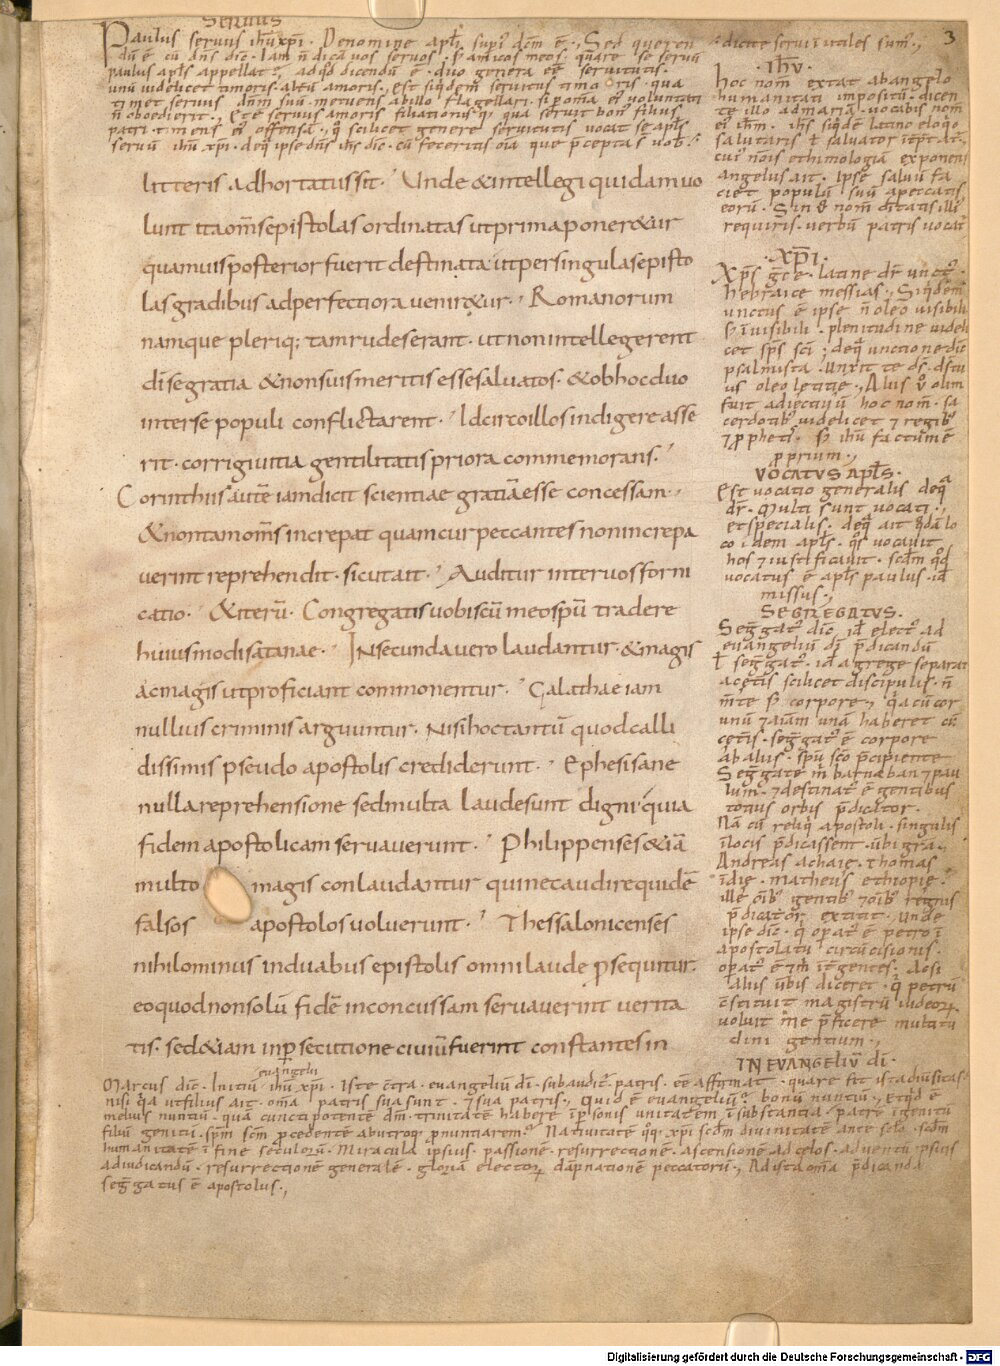 SERVUS
3
Paulus servus ihū xpī. Denomine apłi supᵃ dcm̄ ē. Sed queren
dū ē cū dn̄s dic̄. Iam n̄ dicā vos servos. sꝫ amicos meos. quare se servū
paulus apłs appellat. adqđ dicendū ē. duo genera eē servitutis.
unū videlicet timoris. altū amoris. Est siqđem servitus timoris. qua
timet servus dn̄m suū metuens abillo flagellari. si p̄oma ei voluntati
n̄ oboedierit. Ete servus amoris filiationis q̨. qua servit bon' filius
patri timens ei' offensā. q̄ scilicet genere servitutis vocat se apłs
servū ihū xpī. deq̄ ipse dn̄s ih̄s dic̄. cū feceritis oīa que p̄cepta s̄ vob'
dicite servi inutiles sum'.
litteris adhortatus sit. Unde & intellegi quidam vo
lunt ita om̄s epistolas ordinatas ut prima poner&ur
quamvis posterior fuerit destinata ut per singulas episto
las gradibus ad perfectiora venir&ur. Romanorum
namque pleriq; tam rudes erant. ut non intellegerent
dī se gratia & non suis meritis esse salvatos. & ob hoc duo
inter se populi conflictarent. Idcirco illos indigere asse
rit. corrigi vitia gentilitatis priora commemorans.
Corinthiis autē iam dicit scientiae gratiā esse concessam.
& non tam om̄s increpat quam cur peccantes non increpa
verint reprehendit. sicut ait. Auditur inter vos forni
catio. & iterū. Congregatis vobiscū meo spū tradere
huiusmodi satanae. In secunda vero laudantur. & magis
ac magis ut proficiant commonentur. Galathae iam
nullius criminis arguuntur. nisi hoc tantū quod calli
dissimis pseudo apostolis crediderunt. Ephesi sane
nulla reprehensione sed multa laude sunt digni quia
fidem apostolicam servaverunt. Philippenses &iā
multo magis conlaudantur qui nec audire quidē
falsos apostolos voluerunt. Thessalonicenses
nihilominus in duabus epistolis omni laude p̱sequitur.
eo quod non solū fidē inconcussam servaverint verita
tis. sed &iam in p̱secutione civiū fuerint constantes in
IHV.
hoc nom̄ extat abangelo
humanitati impositū. dicen
te illo ad mariā. vocabis nom̄
ei' ih̄m. ih̄s siqđē latino eloq̄o
salutaris ł salvator int̄p̄t̄at̄.
cui' nōis ethimologiā exponens
angelus ait. ipse salvū fa
ciet populū suū apeccatis
eorū. Sin v̊ nom̄ deitatis illi'
requiris. verbū patris vocat̄
XPI.
Xp̄s gr̄ce. latine dr̄ unct'.
hebraice messias. Siqđem
unctus ē ipse n̄ oleo visibili
sꝫ īvisibili. plenitudine videli
cet sp̄s sc̄i. deq̄ unctione dic̄
psalmista. Unxit te ds̄. ds̄ tu
us oleo letitie. Aliis v̊ olim
fuit adiectivū hoc nom̄. sa
cerdotib' videlicet ⁊ regib'
⁊ p̱pheti'. sꝫ ihū factum ē
p̱prium.
VOCATUS APŁS.
Est vocatio generalis deq̄
dr̄. Multi sunt vocati.
et specialis. deq̄ ait q̄dā lo
co idem apłs. q̄s vocavit
hos ⁊ iustificavit. scdm̄ qđ
vocatus ē apłs paulus. id
missus.
SEGREGATUS.
Seg̅gat' dic̄. id elect' ad
evangeliū dī p̄dicandū
ł seg̅gat'. id a grege separat'
acet̄is scilicet discipulis. n̄
m̄te sꝫ corpore. q̄a cū cor
unū ⁊ aīam unā haberet cū
cet̄is. seg̅gat' ē corpore
ab aliis. spū sc̄o p̄cipiente
Seg̅gate m̄ barnaban ⁊ pau
lum. ⁊ destinat' ē gentibus
totius orbis p̄dicator.
Nā cū reliq̄ apostoli. singulis
īlocis p̄dicassent. ūbi grā.
Andreas achaie. thomas
īdie. matheus ethiopie.
ille oīb' gentib' ⁊ oīb' regnis
p̄dicator extitit. Unde
ipse dic̄. q̄ opat' ē petro ī
apostolatu circūcisionis.
opat' ē ⁊ m̄ īt̄ gentes. Acsi
aliis v̄bis diceret. q̄ petrū
c̄stituit magistrū iudeoꝝ.
voluit me p̄ficere multitu
dini gentium.
IN EVANGELIŪ dī.
evangelii
Marcus dic̄. Initiū ihū xpī. Iste c̄tra. evangeliū dī. subaudit' patris. eē affirmat. quare fit ista diūsitas.
nisi q̄a utfilius ait. om̄a patris sua sunt. ⁊ sua patris. Quid ē evangeliū? bonū nuntiū. Et qđ ē
melius nuntiū. quā cunctipotentē dm̄. trinitatē habere ī p̱sonis unitatem ī substantia. patrē īgenitū
filiū genitū. spm̄ scm̄ p̱cedentē abutroq; p̱nuntiarem? Nativitatē q̨q̨. xpī scdm̄ divinitatē ante sclā. scdm̄
humanitatē ī fine seculorū. Miracula ipsius. passionē. resurrectionē. ascensionē ad celos. adventū ipsius
adiudicandū. resurrectionē generalē. gloriā electoꝝ. dāpnationē peccatorū. Ad ista om̄a p̄dicanda
seg̅gatus ē apostolus.
Digitalisierung gefördert durch die Deutsche Forschungsgemeinschaft - DFG